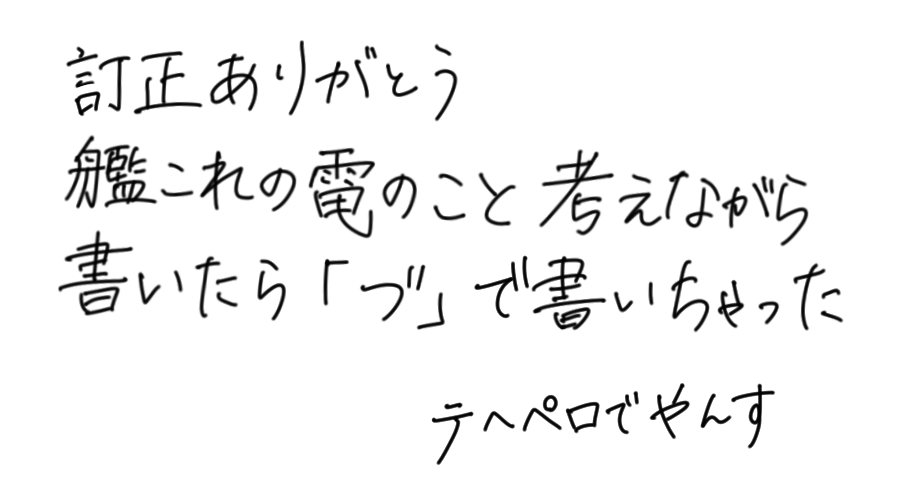 訂正ありがとう
艦これの電のこと考えながら
書いたら「づ」で書いちゃった
テヘペロでやんす